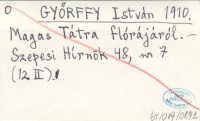 O GYÖRFFY István 1910.
Magas Tátra flórájáról. –
Szepesi Hírnök 48, no 7
(12 II).